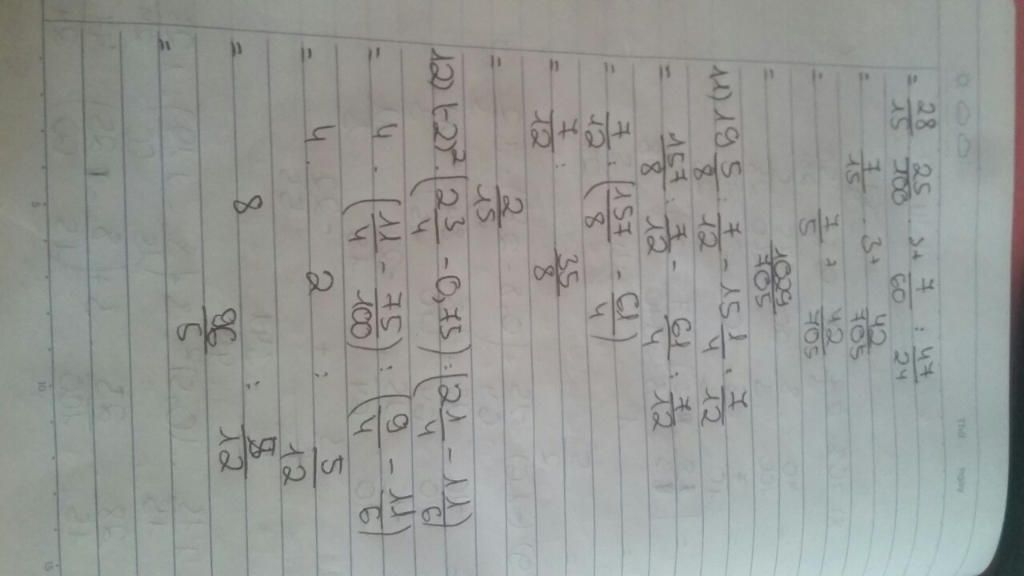 Thứ Ngày
= 28/15 . 25/100 . 3 + 7/60 : 47/24
= 7/15 . 3 + 42/705
= 7/5 + 42/705
= 1029/705
11) 19 5/8 : 7/12 - 15 1/4 : 7/12
= 157/8 : 7/12 - 61/4 : 7/12
= 7/12 : (157/8 - 61/4)
= 7/12 : 35/8
= 2/15
12) (-2)² . (2 3/4 - 0,75) : (2 1/4 - 1 1/6)
= 4 . (11/4 - 75/100) : (9/4 - 11/6)
= 4 . 2 : 5/12
= 8 : 5/12
= 96/5
5 10 15